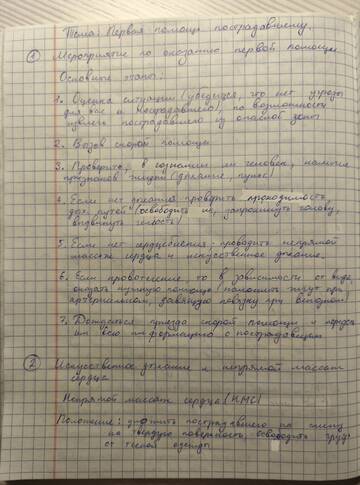 Тема: Первая помощь пострадавшему.
① Мероприятие по оказанию первой помощи
Основные этапы:
1. Оценка ситуации (убедиться, что нет угрозы
для вас и пострадавшего), по возможности
извлечь пострадавшего из опасной зоны
2. Вызов скорой помощи
3. Проверить, в сознании ли человек, наличие
признаков жизни (дыхание, пульс)
4. Если нет дыхания проверить проходимость
дых. путей (освободить их, запрокинуть голову,
выдвинуть челюсть)
5. Если нет сердцебиения - проводить непрямой
массаж сердца и искусственное дыхание.
6. Если кровотечение, то в зависимости от вида
оказать нужную помощь (наложить жгут при
артериальном, давящую повязку при венозном)
7. Дождаться приезда скорой помощи и передать
им всю информацию о пострадавшем
② Искусственное дыхание и непрямой массаж
сердца
Непрямой массаж сердца (НМС)
Положение: уложить пострадавшего на спину
на твёрдую поверхность, освободить грудь
от тесной одежды